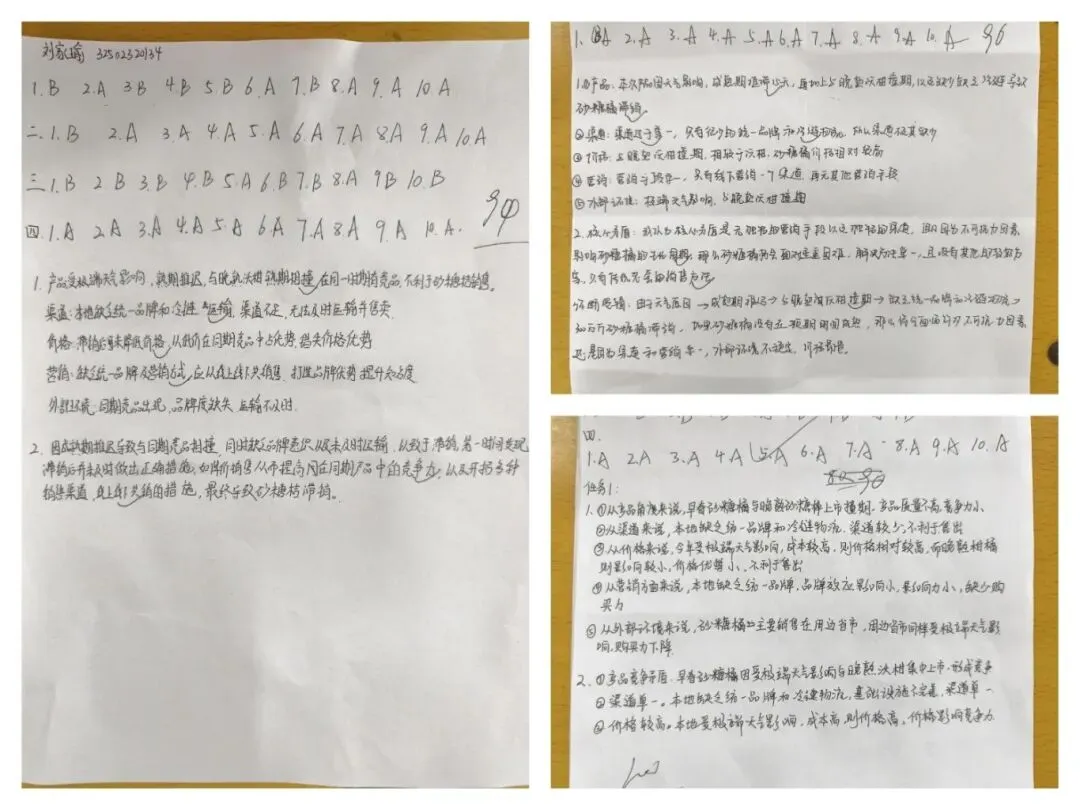 刘家瑜 3250232034
1.B 2.A 3B 4.B 5.B 6.A 7.B 8.A 9.A 10.A
二.1.B 2.A 3.A 4.A 5.A 6.A 7.A 8.A 9.A 10.A
三1.B 2B 3.B 4.B 5.A 6.B 7.B 8.A 9B 10.B
四.1.A 2.A 3.A 4.A 5.A 6.A 7.A 8.A 9.A 10.A.
1.产品受极端天气影响,熟期推迟,与晚熟沃柑熟期相撞,在同一时期有竞品,不利于砂糖桔销售。
渠道:本地缺乏统一品牌和冷链运输,渠道不足,无法及时运输并售卖
价格:滞销后未降低价格,从而在同期竞品中占劣势,损失价格优势
营销:缺乏统一品牌及营销方式,应从线上线下共销售,打造品牌优势 提升知名度
外部环境:同期竞品出现,品牌度缺失 运输不及时.
2.因成熟期推迟导致与同期竞品相撞,同时缺乏品牌意识以及未及时运输,以致于滞销,第一时间发现
滞销后并未及时做出正确措施,如降价销售从而提高网在同期产品中的竞争力,以及开拓多种
销售渠道,线上线下共销的措施,最终导致砂糖桔滞销。
1. A 2.A 3.A 4.A 5.A 6.A 7.A 8.A 9.A 10.A 96
1.①产品:本次产品因天气影响,成熟期推迟15天,再加上与晚熟沃柑撞期,以及缺少缺乏冷链导致
砂糖橘滞销。
②渠道:渠道过于单一,只有很少的统一品牌和冷链物流,所以渠道极其缺少
③价格:与晚熟沃柑撞期,相较于沃柑,砂糖橘价格相对较高
④营销:营销手段单一,只有线下营销一个渠道,再无其他营销手段
⑤外部环境:极端天气影响,与晚熟沃柑撞期
2.核心矛盾:我认为核心矛盾是无独特的营销手段以及独特的渠道,
影响砂糖橘的
只有
诊断逻辑:由于天气原因→成熟期推迟→与晚熟沃柑撞期→缺乏统一品牌和冷链物流→
万斤砂糖橘滞销,如果砂糖橘没有在预期时间成熟,那么
是因为渠道和营销单一,外部环境不稳定,价格高。
四.
1.A 2.A 3.A 4.A 5.A 6.A 7.A 8.A 9.A 10.A
任务1:
1.①从产品角度来说,早春砂糖橘与晚熟砂糖桔上市撞期,产品质量不高,竞争力小
②从渠道来说,本地缺乏统一品牌和冷链物流,渠道较少,不利于售出
③从价格来说,今年受极端天气影响,成本较高,则价格相对较高,而晚熟柑橘
则影响较小,价格优势小,不利于售出
④从营销方面来说,本地缺乏统一品牌,品牌效应影响小,影响力小,缺少购
买力
⑤从外部环境来说,砂糖橘主要销售在周边省市,周边省市同样受极端天气影
响,购买力下降.
2.①产品竞争矛盾.早春砂糖橘因受极端天气影响与晚熟沃柑集中上市,形成竞争
②渠道单一。本地缺乏统一品牌和冷链物流,基础设施不完善,渠道单一
③价格较高。本地受极端天气影响,成本高,则价格高,价格影响竞争力